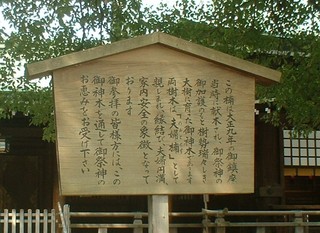 この楠は大正九年の御鎮座
当時に献木され、御祭神の
御加護のもと樹勢瑞々しき
大樹に育った御神木であります
両樹木は「夫婦楠」として
親しまれ縁結び、夫婦円満、
家内安全の象徴となって
おります
御参拝の皆様方には、この
御神木を通して御祭神の
お恵みをお受け下さい